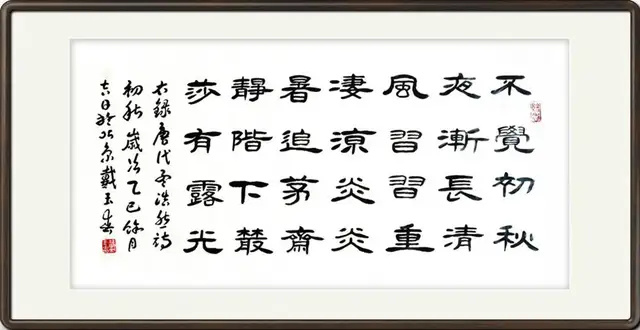 不覺初秋
夜漸長清
風習習重
淒涼炎炎
暑退茅齋
靜階下叢
莎有露光
右錄唐代孟浩然詩
初秋歲次乙巳餘月
吉日於北京戴玉